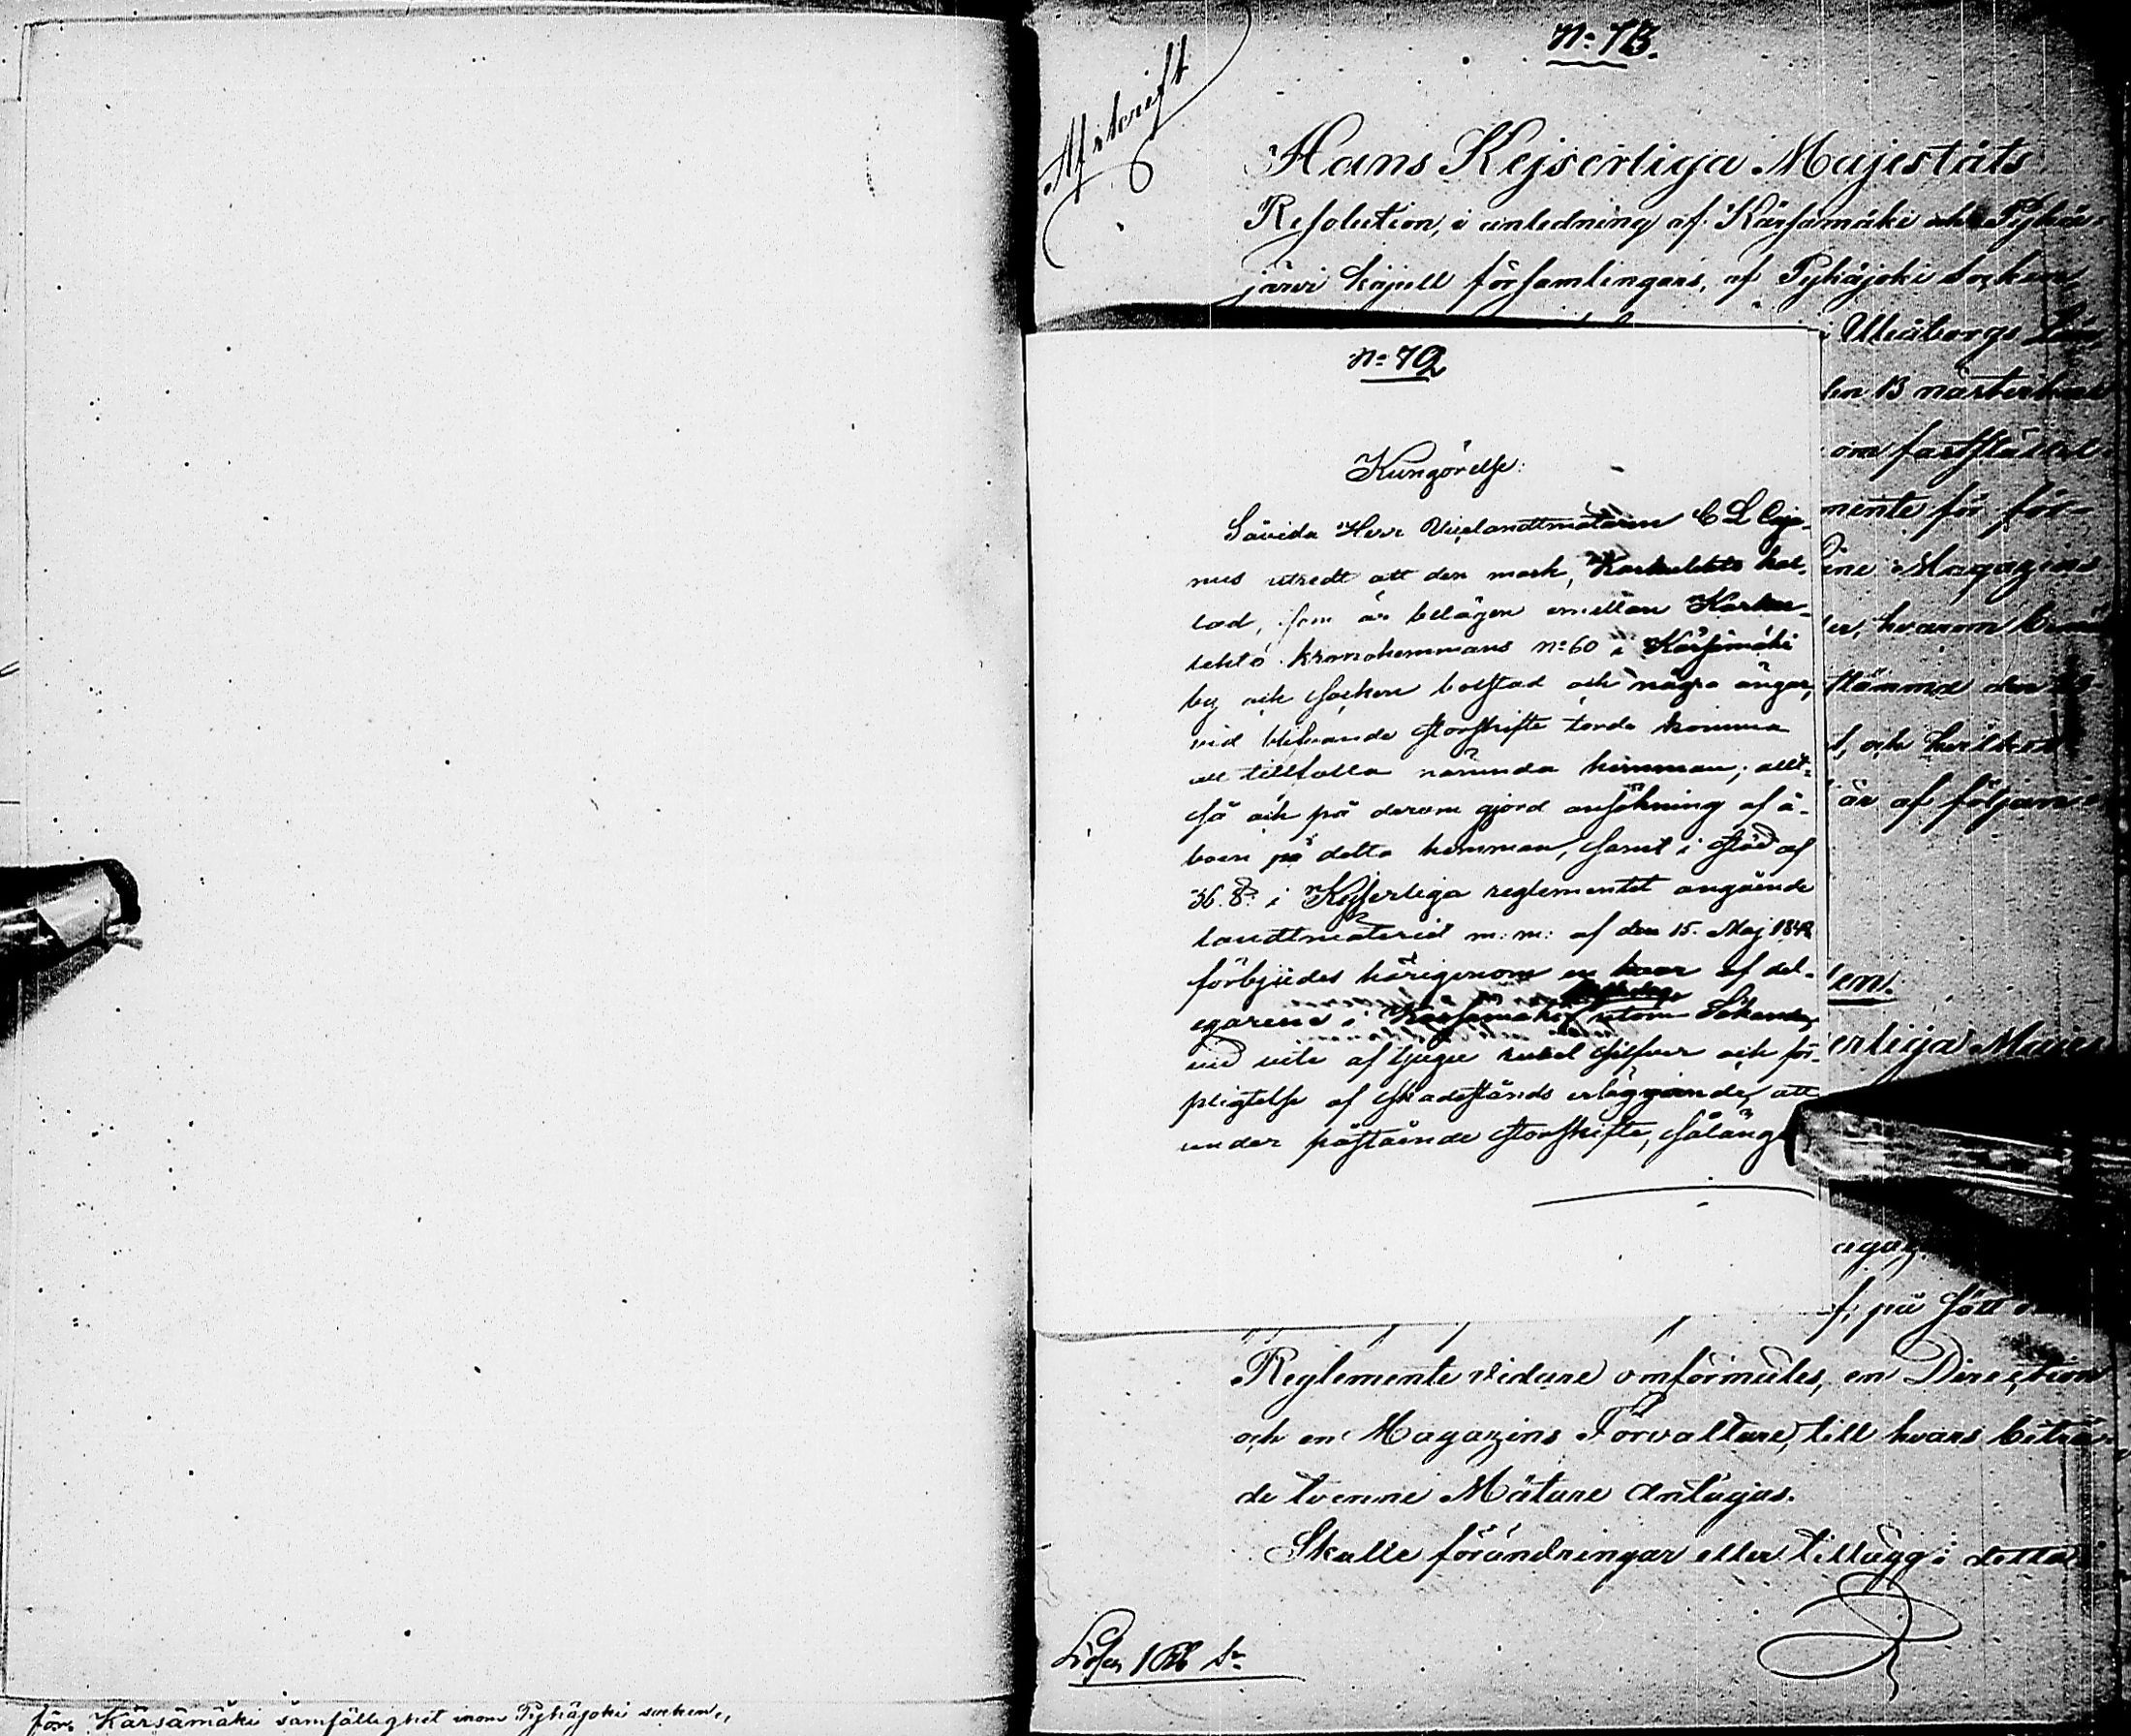 för Kärsämäki samfällighet inom Pyhäjoki socken,,
N: 73.
Afskrift
Hans Kejserliga Majestäts
Resolution, i anledning af Kärsämäki och Pyhä-
järvi kapell församlingars, af Pyhäjoki socken,
i Uleåborgs Län,
den 13 nästvikne
om fastställel
mente för för-
Magazins
er, hvarom
stämma den
t, och hvilket
är af följan
erliga Majes
agaz
f, på sätt
Reglemente vidare omförmäles, en Direction
och en Magazins Förvaltare, till hvars biträ-
de tvenne Mätare antagas.
Skulle förändringar eller tillägg i detta
N: 72
Kungörelse:
Såvida Herr Vicelandtmätaren C L Caja-
nus utredt att den mark, Karhulehto kal-
lad, som är belägen emellan Karhu-
lehto kronohemmans N: 60 i Kärsämäki
by och socken bolstad och några ängar,
vid blifvande storskifte torde komma
att tillfalla nämnda hemman; allt-
så och på derom gjord ansökning af å-
boen på detta hemman, samt i stöd af
36. §. i Kejserliga reglementet angående
landtmäteriet m: m: af den 15. Maj 1848
förbjudes härigenom en hvar af del-
egarene i Kärsämäki utom Sökanden
vid vite af tjugu rubel silfver och för-
pligtelse af skadestånds erläggande, att
under påstående storskifte, sålänge